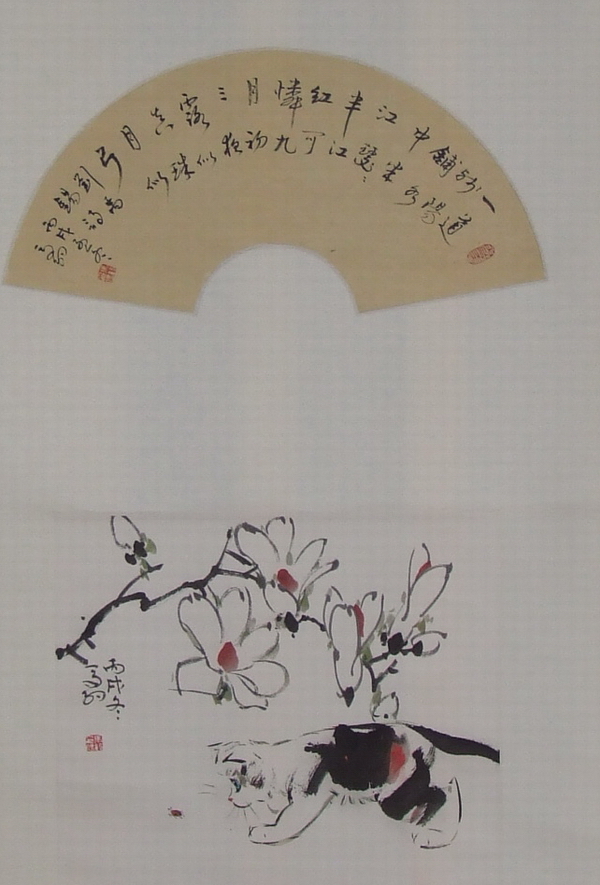 一道
殘陽
鋪水
中半
江瑟瑟
半江
紅可
憐九
月初
三夜
露似
真珠
月似
弓
劉禹
錫詩
丙戌
丙戌冬